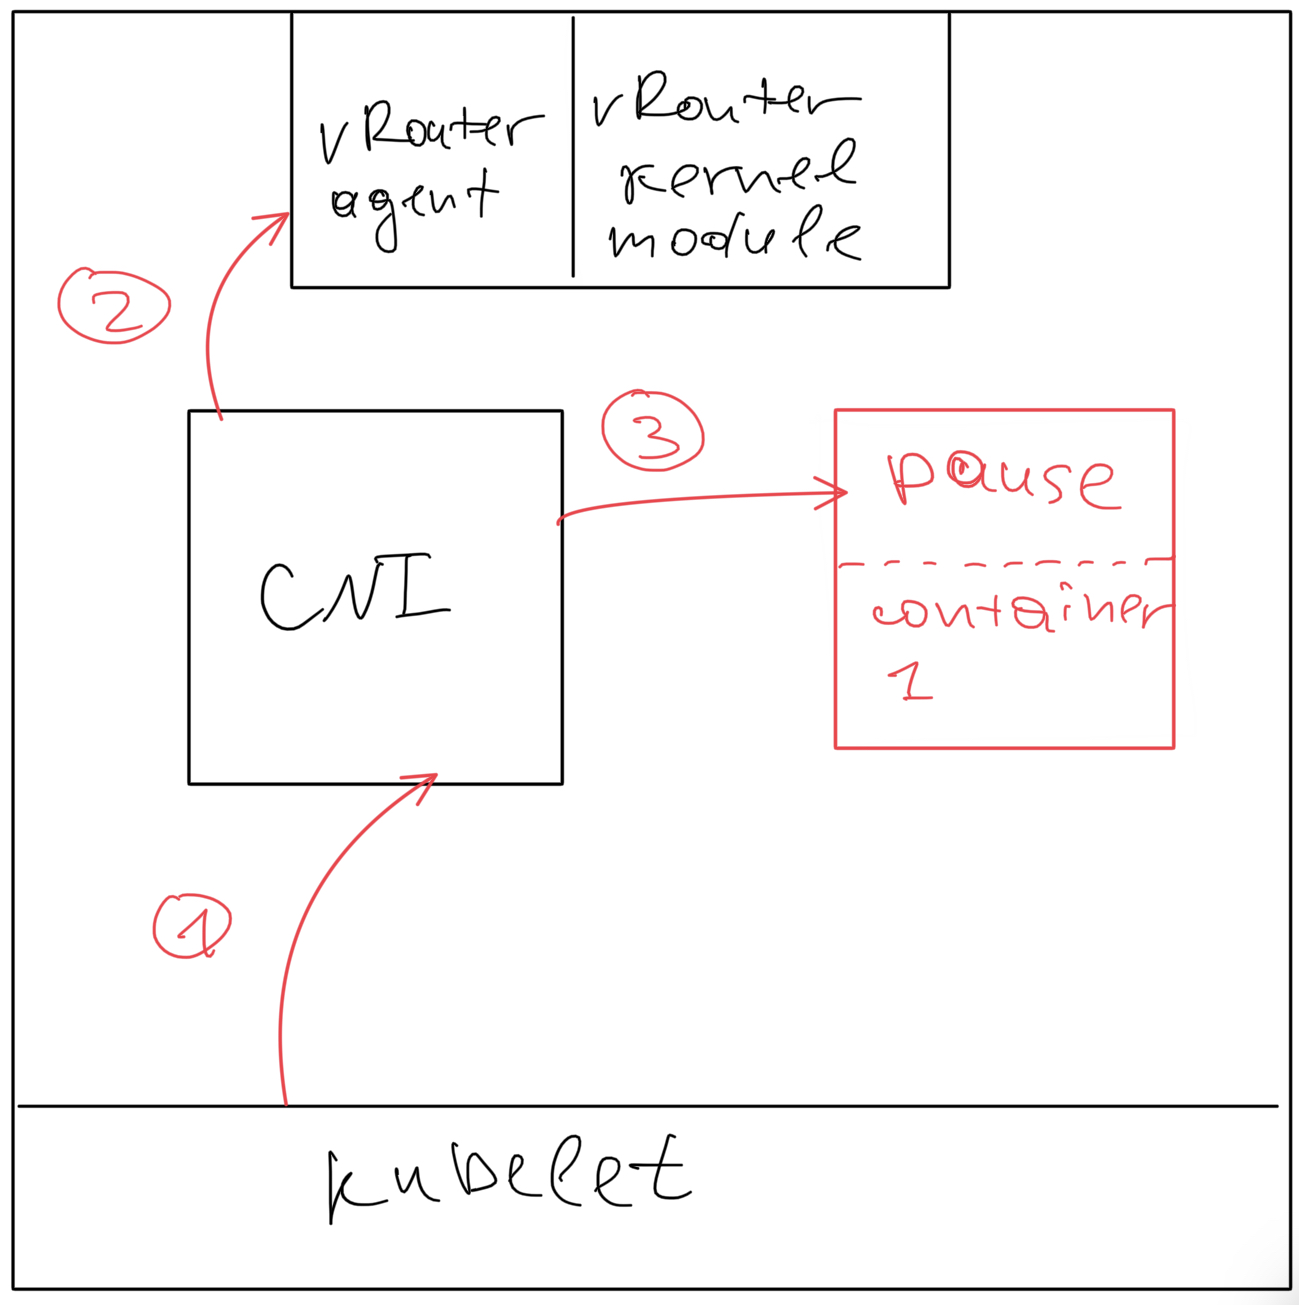 vRouter
agent
vRouter
kernel
module
2
3
pause
CNI
container
1
1
kubelet